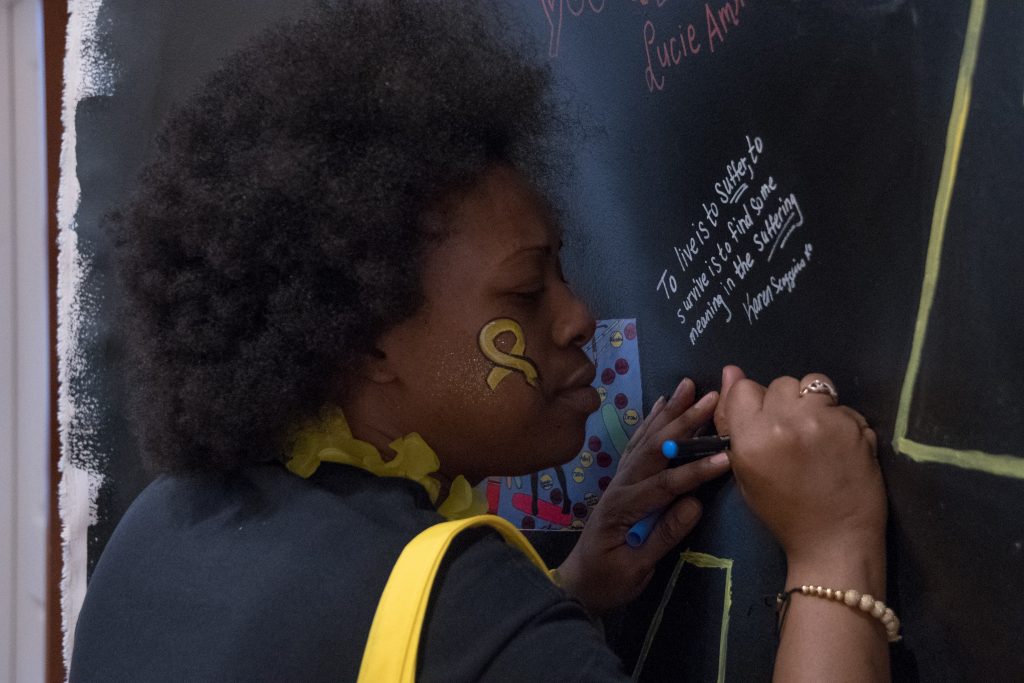 Lucie
To live is to Suffer, to
survive is to find some
meaning in the suffering
Karen